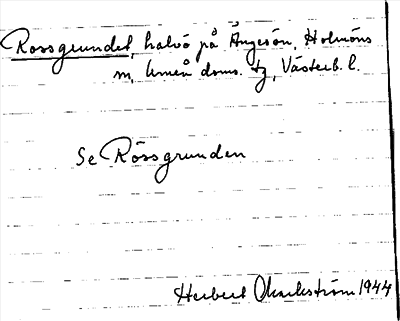 Rossgrundet, halvö på Ängesön, Holmöns
m, Umeå doms. tg, Västerb. l.
Se Rössgrunden
Herbert Markström 1944